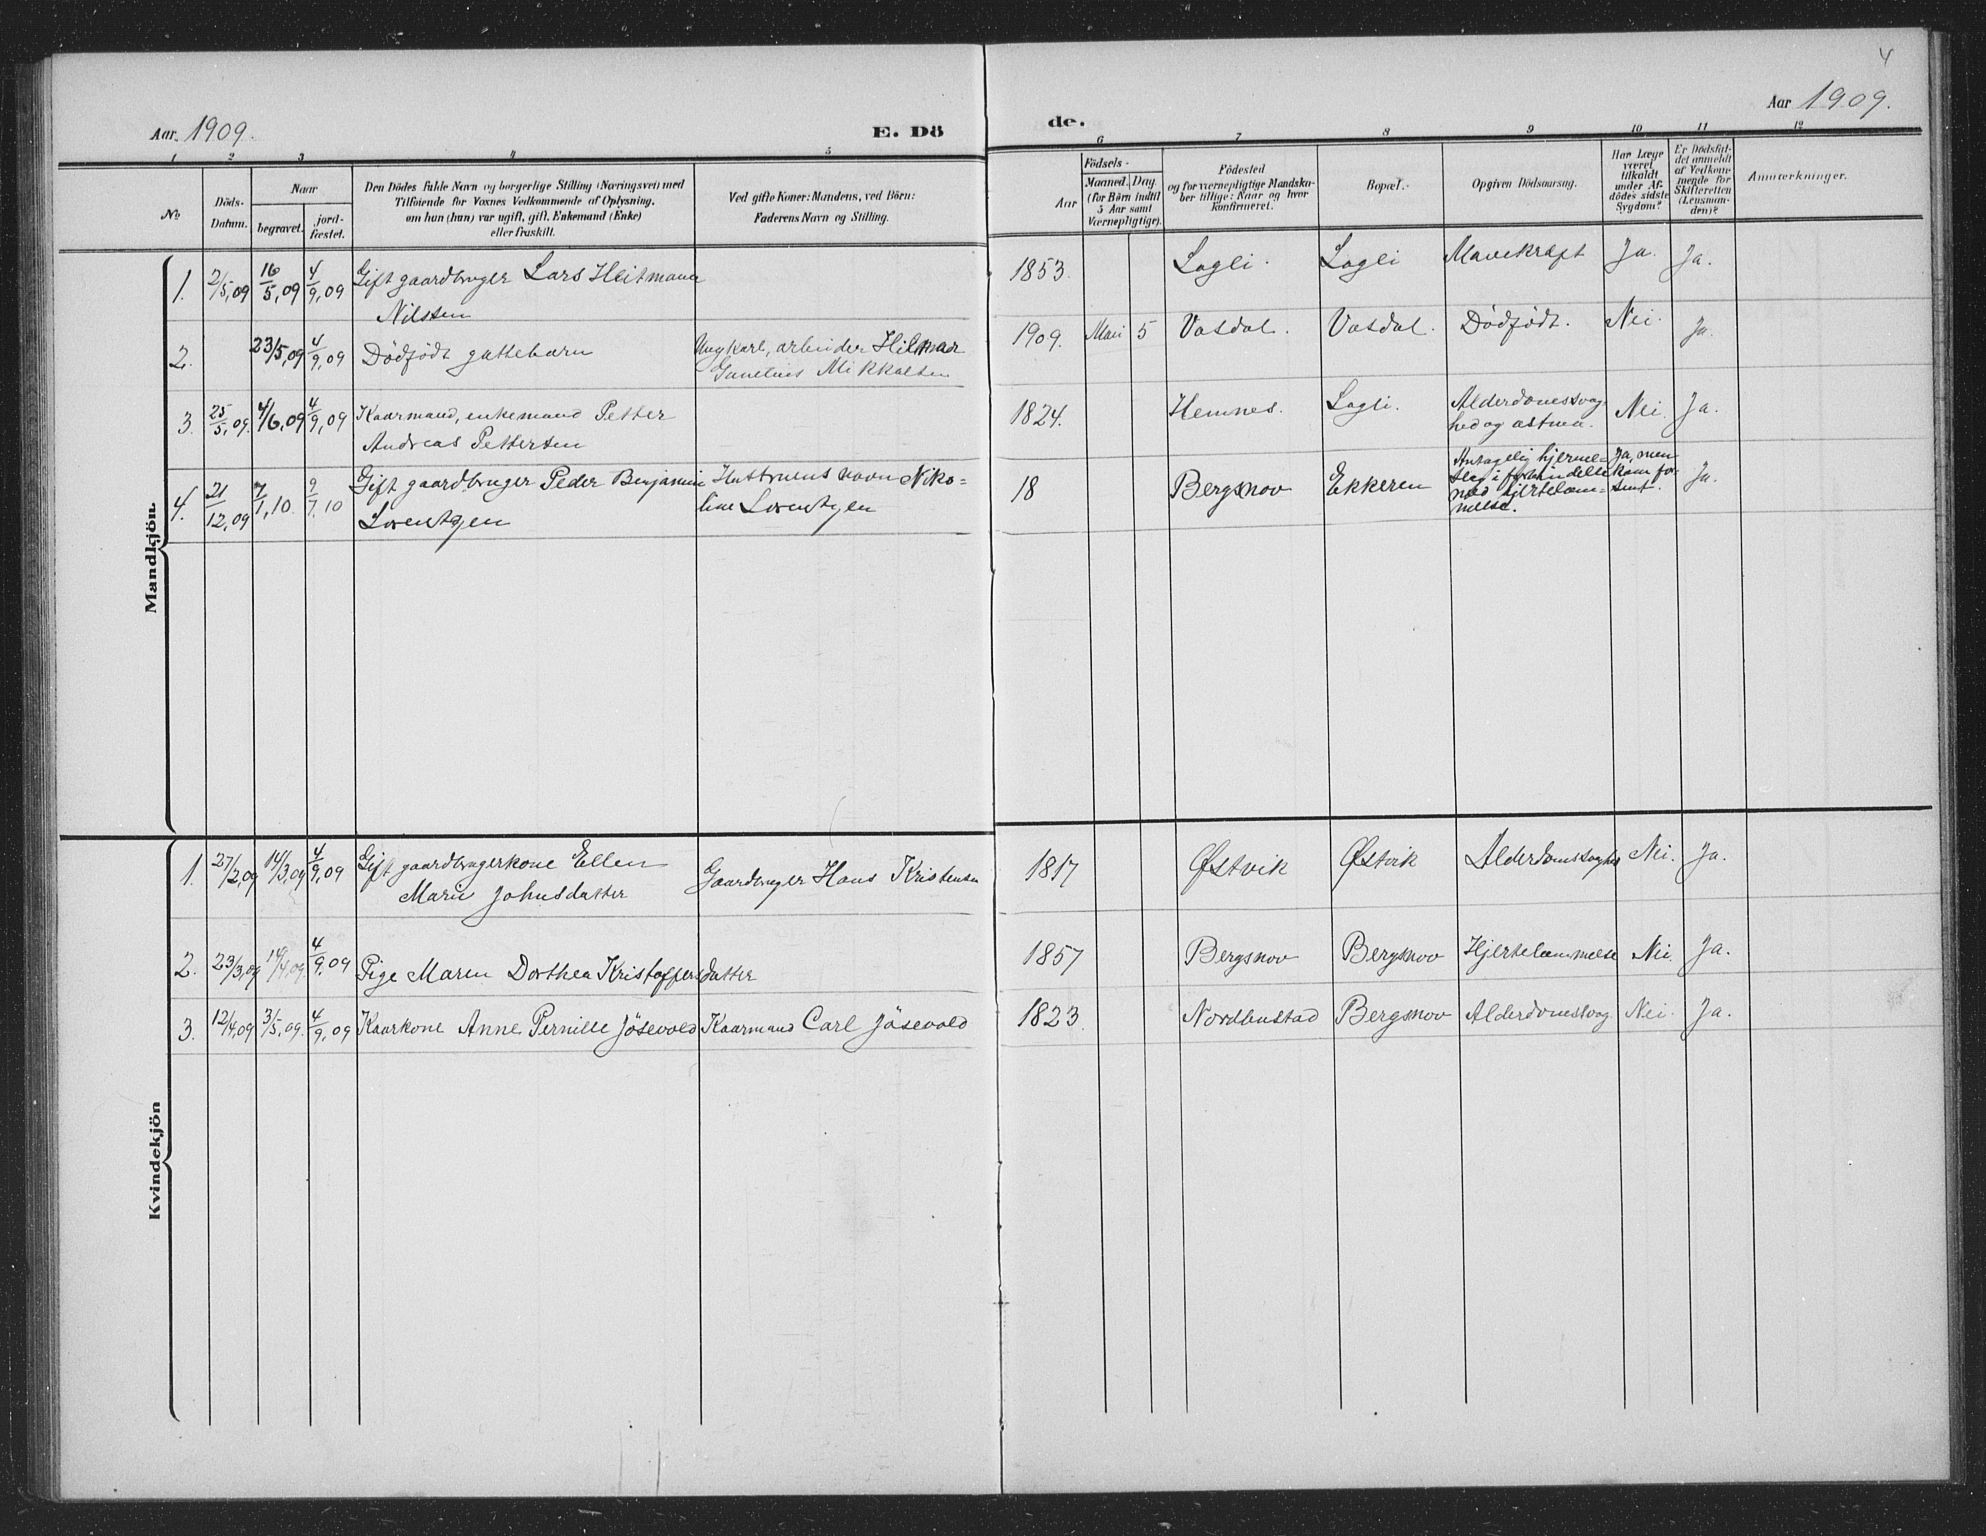 4
Aar 1909.
E. Dö
de.
Aar 1909.
1 2 3 4 5 6 7 8 9 10 11 12
No
Döds-
Datum.
Naar
begravet.
jord-
fæstet.
Den Dödes fulde Navn og borgerlige Stilling (Næringsvei) med
Tilföiende for Voxnes Vedkommende af Oplysning,
om han (hun) var ugift, gift, Enkemand (Enke)
eller fraskilt.
Ved gifte Koner: Mandens, ved Börn:
Faderens Navn og Stilling.
Födsels-
Aar
Maaned. Dag.
(for Börn indtil
5 Aar samt
Værnepligtige).
Födested
og for værnepligtige Mandska-
ber tillige: Naar og hvor
konfirmeret.
Bopæl.
Opgiven Dödsaarsag.
Har Læge
været
tilkaldt
under Af-
dödes sidste
Sygdom?
Er Dödsfal-
det anmeldt
af Vedkom-
mende for
Skifteretten
(Lensman-
den)?
Anmærkninger.
Mandkjön.
1. 2/5,09 16/5,09 4/9,09 Gift gaardbruger Lars Heitmann
Nilsen
1853. Lagli. Lagli Mavekræft Ja. Ja.
2. 23/5,09 4/9,09 Dödfödt guttebarn
Ungkarl, arbeider Hilmar
Mikkalsen
1909. Mai 5 Vasdal. Vasdal. Dödfödt. Nei. Ja.
3. 25/5,09. 4/6,09 4/9,09 Kaarmand, enkemand Petter
Andreas Pettersen
1824. Hemnes. Lagli. Alderdomssvag-
hed og astma. Nei. Ja.
4. 21/12,09 7/1,10. 2/7,10 Gift gaardbruger Peder Benjamin
Lorentzen
Hustruens navn Niko-
line Lorentzen
18 Bergsnov Ekkeren
Antagelig hjerne-
slag i forbindelse
med hjertelam-
melse.
Ja, men
kom for
sent.
Ja.
Kvindekjön
1. 27/2,09 14/3,09 4/9,09 Gift gaardbrugerkone Ellen
Marie Johnsdatter
Gaardbruger Hans Kristensen
1817 Østvik Østvik Alderdomssvaghed Nei. Ja.
2. 23/3,09 14/4,09 4/9,09 Pige Maren Dorthea Kristoffersdatter
1857 Bergsnov Bergsnov Hjertelammelse Nei. Ja.
3. 12/4,09 3/5,09. 4/9,09 Kaarkone Anne Pernille Jösevold Kaarmand Carl Jösevold
1823. Nordbustad Bergsnov Alderdomssvag Nei. Ja.